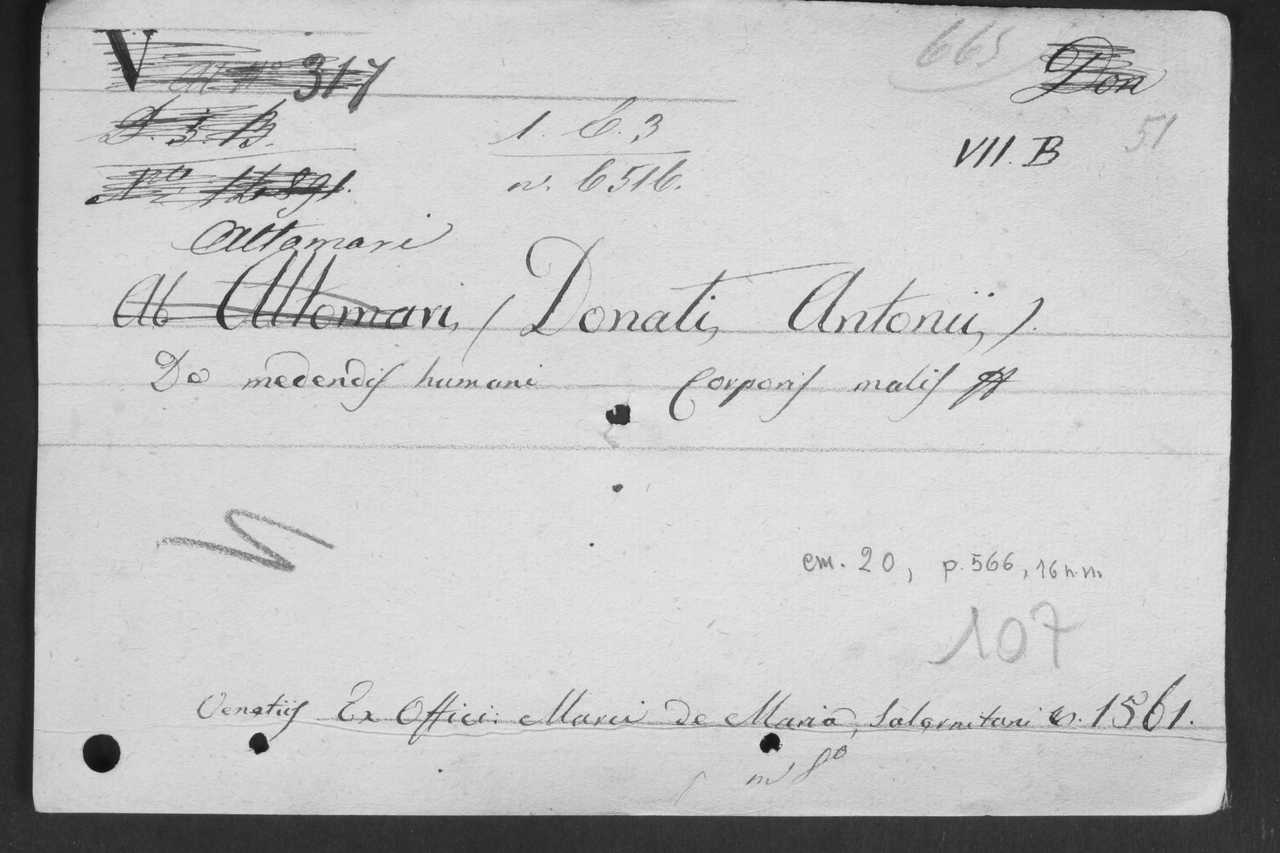 V 317
665
Don
D. 3. B.
1. C. 3
VII. B
51
No 12891.
n. 6516.
Altomari
Ab Altomari, (Donati, Antonii,)
De medendis humani corporis malis
em. 20, p. 566, 16 n.n.
107
Venetiis Ex Offici: Marci de Maria, Salernitani 1561.
in 8o